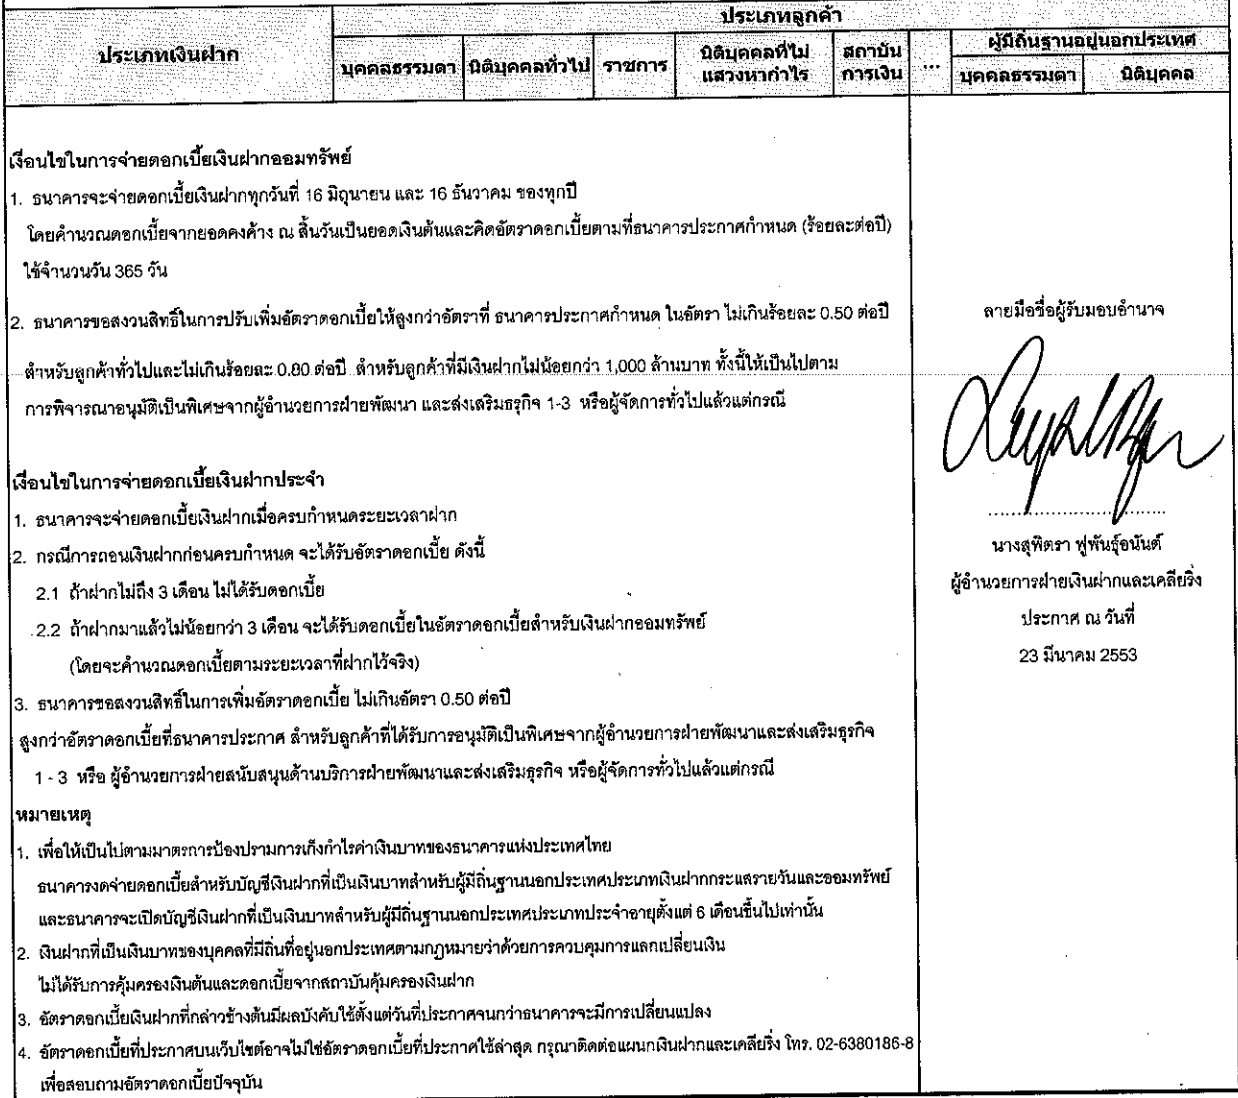 ประเภทลูกค้า
ประเภทเงินฝาก
บุคคลธรรมดา นิติบุคคลทั่วไป ราชการ นิติบุคคลที่ไม่แสวงหากำไร สถาบันการเงิน ... ผู้มีถิ่นฐานอยู่นอกประเทศ
บุคคลธรรมดา นิติบุคคล
เงื่อนไขในการจ่ายดอกเบี้ยเงินฝากออมทรัพย์
1. ธนาคารจะจ่ายดอกเบี้ยเงินฝากทุกวันที่ 16 มิถุนายน และ 16 ธันวาคม ของทุกปี
โดยคำนวณดอกเบี้ยจากยอดคงค้าง ณ สิ้นวันเป็นยอดเงินต้นและคิดอัตราดอกเบี้ยตามที่ธนาคารประกาศกำหนด (ร้อยละต่อปี)
ใช้จำนวนวัน 365 วัน
2. ธนาคารขอสงวนสิทธิ์ในการปรับเพิ่มอัตราดอกเบี้ยให้สูงกว่าอัตราที่ ธนาคารประกาศกำหนด ในอัตรา ไม่เกินร้อยละ 0.50 ต่อปี
สำหรับลูกค้าทั่วไปและไม่เกินร้อยละ 0.80 ต่อปี สำหรับลูกค้าที่มีเงินฝากไม่น้อยกว่า 1,000 ล้านบาท ทั้งนี้ให้เป็นไปตาม
การพิจารณาอนุมัติเป็นพิเศษจากผู้อำนวยการฝ่ายพัฒนา และส่งเสริมธุรกิจ 1-3 หรือผู้จัดการทั่วไปแล้วแต่กรณี
เงื่อนไขในการจ่ายดอกเบี้ยเงินฝากประจำ
1. ธนาคารจะจ่ายดอกเบี้ยเงินฝากเมื่อครบกำหนดระยะเวลาฝาก
2. กรณีการถอนเงินฝากก่อนครบกำหนด จะได้รับอัตราดอกเบี้ย ดังนี้
2.1 ถ้าฝากไม่ถึง 3 เดือน ไม่ได้รับดอกเบี้ย
2.2 ถ้าฝากมาแล้วไม่น้อยกว่า 3 เดือน จะได้รับดอกเบี้ยในอัตราดอกเบี้ยสำหรับเงินฝากออมทรัพย์
(โดยจะคำนวณดอกเบี้ยตามระยะเวลาที่ฝากไว้จริง)
3. ธนาคารขอสงวนสิทธิ์ในการเพิ่มอัตราดอกเบี้ย ไม่เกินอัตรา 0.50 ต่อปี
สูงกว่าอัตราดอกเบี้ยที่ธนาคารประกาศ สำหรับลูกค้าที่ได้รับการอนุมัติเป็นพิเศษจากผู้อำนวยการฝ่ายพัฒนาและส่งเสริมธุรกิจ
1 - 3 หรือ ผู้อำนวยการฝ่ายสนับสนุนด้านบริการฝ่ายพัฒนาและส่งเสริมธุรกิจ หรือผู้จัดการทั่วไปแล้วแต่กรณี
หมายเหตุ
1. เพื่อให้เป็นไปตามมาตรการป้องปรามการเก็งกำไรค่าเงินบาทของธนาคารแห่งประเทศไทย
ธนาคารงดจ่ายดอกเบี้ยสำหรับบัญชีเงินฝากที่เป็นเงินบาทสำหรับผู้มีถิ่นฐานนอกประเทศประเภทเงินฝากกระแสรายวันและออมทรัพย์
และธนาคารจะเปิดบัญชีเงินฝากที่เป็นเงินบาทสำหรับผู้มีถิ่นฐานนอกประเทศประเภทประจำอายุตั้งแต่ 6 เดือนขึ้นไปเท่านั้น
2. เงินฝากที่เป็นเงินบาทของบุคคลที่มีถิ่นที่อยู่นอกประเทศตามกฎหมายว่าด้วยการควบคุมการแลกเปลี่ยนเงิน
ไม่ได้รับการคุ้มครองเงินต้นและดอกเบี้ยจากสถาบันคุ้มครองเงินฝาก
3. อัตราดอกเบี้ยเงินฝากที่กล่าวข้างต้นมีผลบังคับใช้ตั้งแต่วันที่ประกาศจนกว่าธนาคารจะมีการเปลี่ยนแปลง
4. อัตราดอกเบี้ยที่ประกาศบนเว็บไซต์อาจไม่ใช่อัตราดอกเบี้ยที่ประกาศใช้ล่าสุด กรุณาติดต่อแผนกเงินฝากและเคลียริ่ง โทร. 02-6380186-8
เพื่อสอบถามอัตราดอกเบี้ยปัจจุบัน
ลายมือชื่อผู้รับมอบอำนาจ
นางสุพิตรา ฟูพันธุ์อนันต์
ผู้อำนวยการฝ่ายเงินฝากและเคลียริ่ง
ประกาศ ณ วันที่
23 มีนาคม 2553